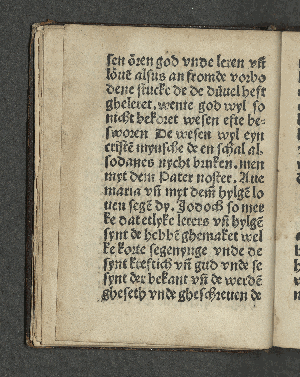 sen oͤren god vnde leren vn̄
loͤuē alsus an fromde vorbo
dene stucke de de duͤuel heft
gheleret, wente god wyl so
nicht bekoret wesen efte be-
sworen De wesen wyl eyn
cristē mynsche de en schal al
sodanes nycht bruken, men
myt dem Pater noster, Aue
maria vn̄ myt dem̄ hylgē lo
uen segē dy. Jodoch so mer
ke dat etlyke lerers vn̄ hylgē
synt de hebbē ghemaket wel
ke korte segenynge vnde de
synt kreftich vn̄ gud vnde se
synt der bekant vn̄ de werdē
gheseth vnde gheschreuen de